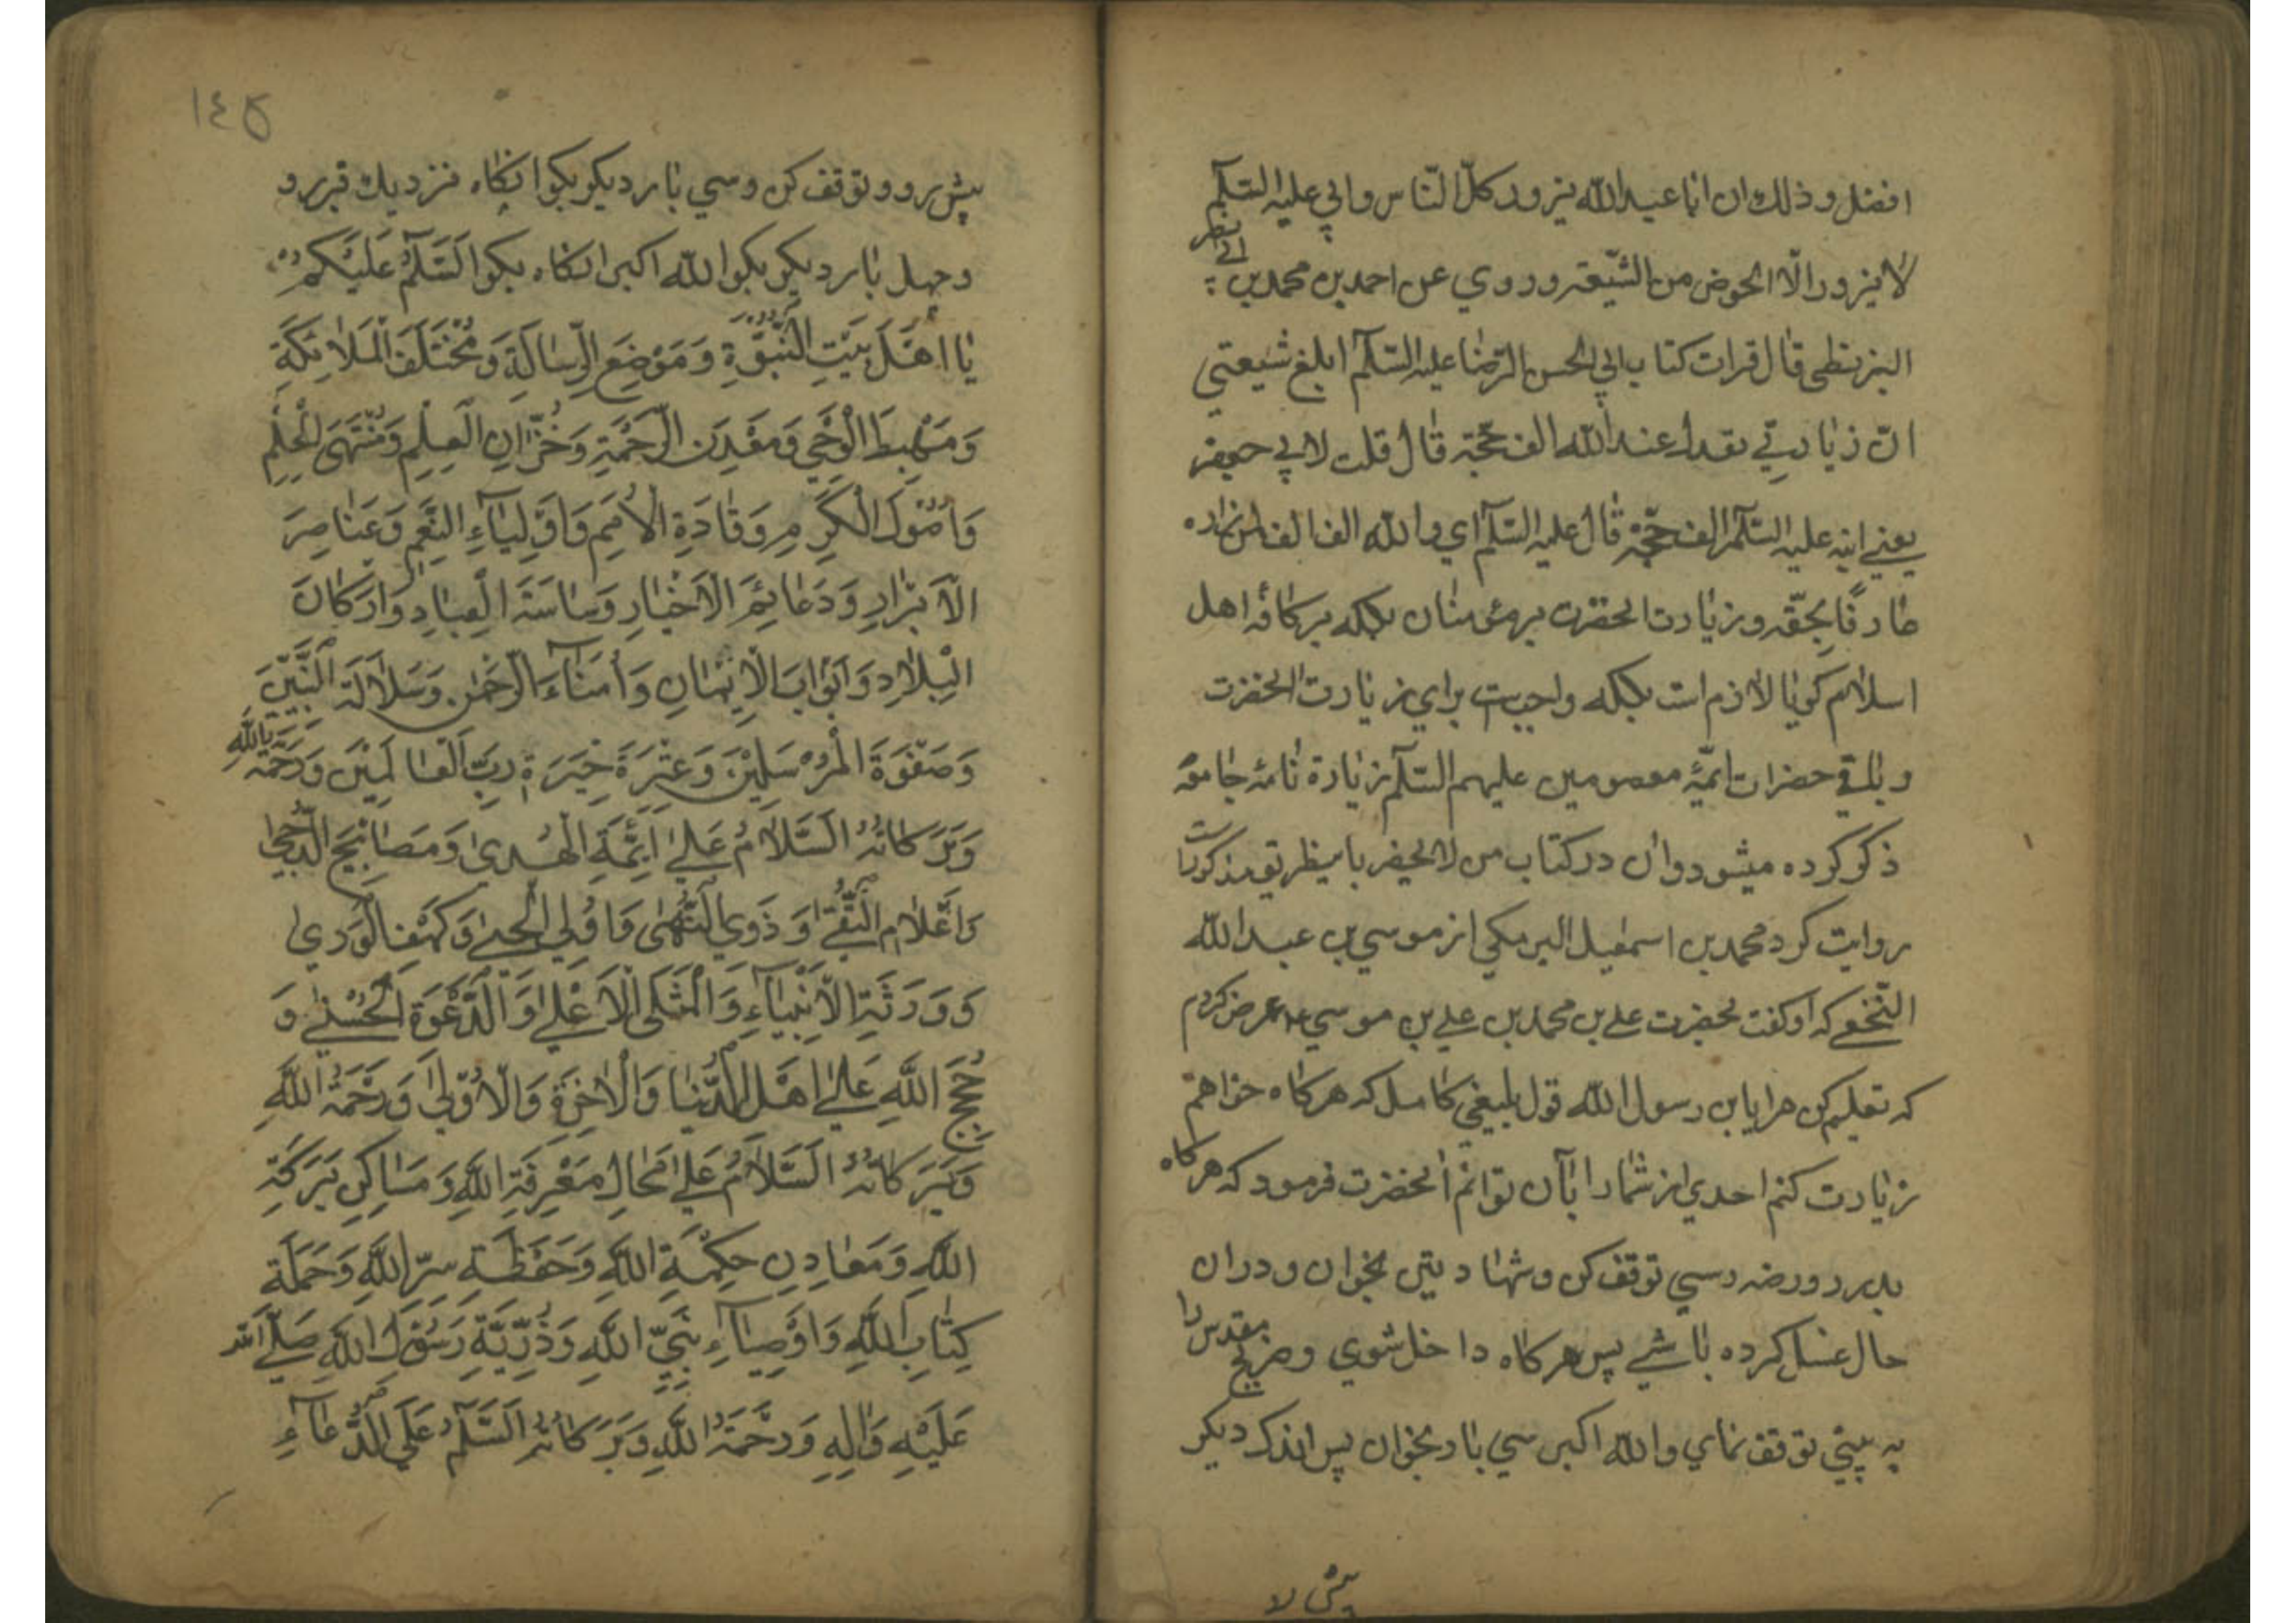 افضل و ذلك ان ابا عبد الله يزوره كلّ النّاس و ابي عليه السّلم
لا يزوره الّا الخوض من الشّيعة و روي عن احمد بن محمد بن ابي نصر
البزنطي قال قرات كتاب ابي الحسن الرّضا عليه السّلم ابلغ شيعتي
انّ زيارتي تعدل عند الله الف حجّة قال قلت لابي جعفر
يعني ابنه عليه السّلم الف حجّة قال عليه السّلم اي والله الف الف لمن زاره
عارفًا بحقّه و زيارت انحضرت بر مؤمنان بلكه بر كافّه اهل
اسلام كويا لازم است بلكه واجبست براي زيارت انحضرت
و باقي حضرات ائمّۀ معصومين عليهم السّلم زيارة تامۀ جامعه
ذكر كرده ميشود و ان در كتاب من لا يحضر باينطريق مذكورست
روايت كرد محمد بن اسمعيل البرمكي از موسي بن عبد الله
النّخعي كه او كفت بحضرت علي بن محمد بن علي بن موسي ع عرض كردم
كه تعليم كن مرا يا بن رسول الله قول بليغي كامل كه هركاه خواهم
زيارت كنم احدي از شما را بآن توانم انحضرت فرمود كه هركاه
بدر روضه رسي توقف كن و شهادتين بخوان و دران
حال غسل كرده باشي پس هركاه داخل شوي و ضريح مقدس را
به بيني توقف نماي و الله اكبر سي بار بخوان پس اندك ديكر
پيش رو
١٤٥
پيش رو و توقف كن و سي بار ديكر بكو انكاه نزديك قبر رو
و چهل بار ديكر بكو الله اكبر انكاه بكو اَلسَّلَمُ عَلَيْكُمْ
يا اَهْلَ بَيْتِ النُّبُوَّةِ وَ مَوْضِعَ الرِّسالَةِ وَ مُخْتَلَفَ الْمَلائِكَةِ
وَ مَهْبِطَ الْوَحْيِ وَ مَعْدِنَ الرَّحْمَةِ وَ خُزّانَ الْعِلْمِ وَ مُنْتَهَى الْحِلْمِ
وَ اُصُولَ الْكَرَمِ وَ قادَةَ الْاُمَمِ وَ اَوْلِياءَ النِّعَمِ وَ عَناصِرَ
الْاَبْرارِ وَ دَعائِمَ الْاَخْيارِ وَ ساسَةَ الْعِبادِ وَ اَرْكانَ
الْبِلادِ وَ اَبْوابَ الْاِيْمانِ وَ اُمَناءَ الرَّحْمنِ وَ سُلالَةَ النَّبِيّيْنَ
وَ صَفْوَةَ الْمُرْسَلِيْنَ وَ عِتْرَةَ خِيَرَةِ رَبِّ الْعالَمِيْنَ وَ رَحْمَةُ اللهِ
وَ بَرَكاتُهُ اَلسَّلامُ عَلى اَئِمَّةِ الْهُدى وَ مَصابِيْحِ الدُّجى
وَ اَعْلامِ التُّقى وَ ذَوِي النُّهى وَ اُولِي الْحِجى وَ كَهْفِ الْوَرى
وَ وَرَثَةِ الْاَنْبِياءِ وَ الْمَثَلِ الْاَعْلى وَ الدَّعْوَةِ الْحُسْنى وَ
حُجَجِ اللهِ عَلى اَهْلِ الدُّنْيا وَ الْاخِرَةِ وَ الْاُوْلى وَ رَحْمَةُ اللهِ
وَ بَرَكاتُهُ اَلسَّلامُ عَلى مَحالِ مَعْرِفَةِ اللهِ وَ مَساكِنِ بَرَكَةِ
اللهِ وَ مَعادِنِ حِكْمَةِ اللهِ وَ حَفَظَةِ سِرِّ اللهِ وَ حَمَلَةِ
كِتابِ اللهِ وَ اَوْصِياءِ نَبِيِّ اللهِ وَ ذُرِّيَّةِ رَسُوْلِ اللهِ صَلَّى الله
عَلَيْهِ وَ الِهِ وَ رَحْمَةُ اللهِ وَ بَرَكاتُهُ اَلسَّلَمُ عَلَى الدُّعاءِ